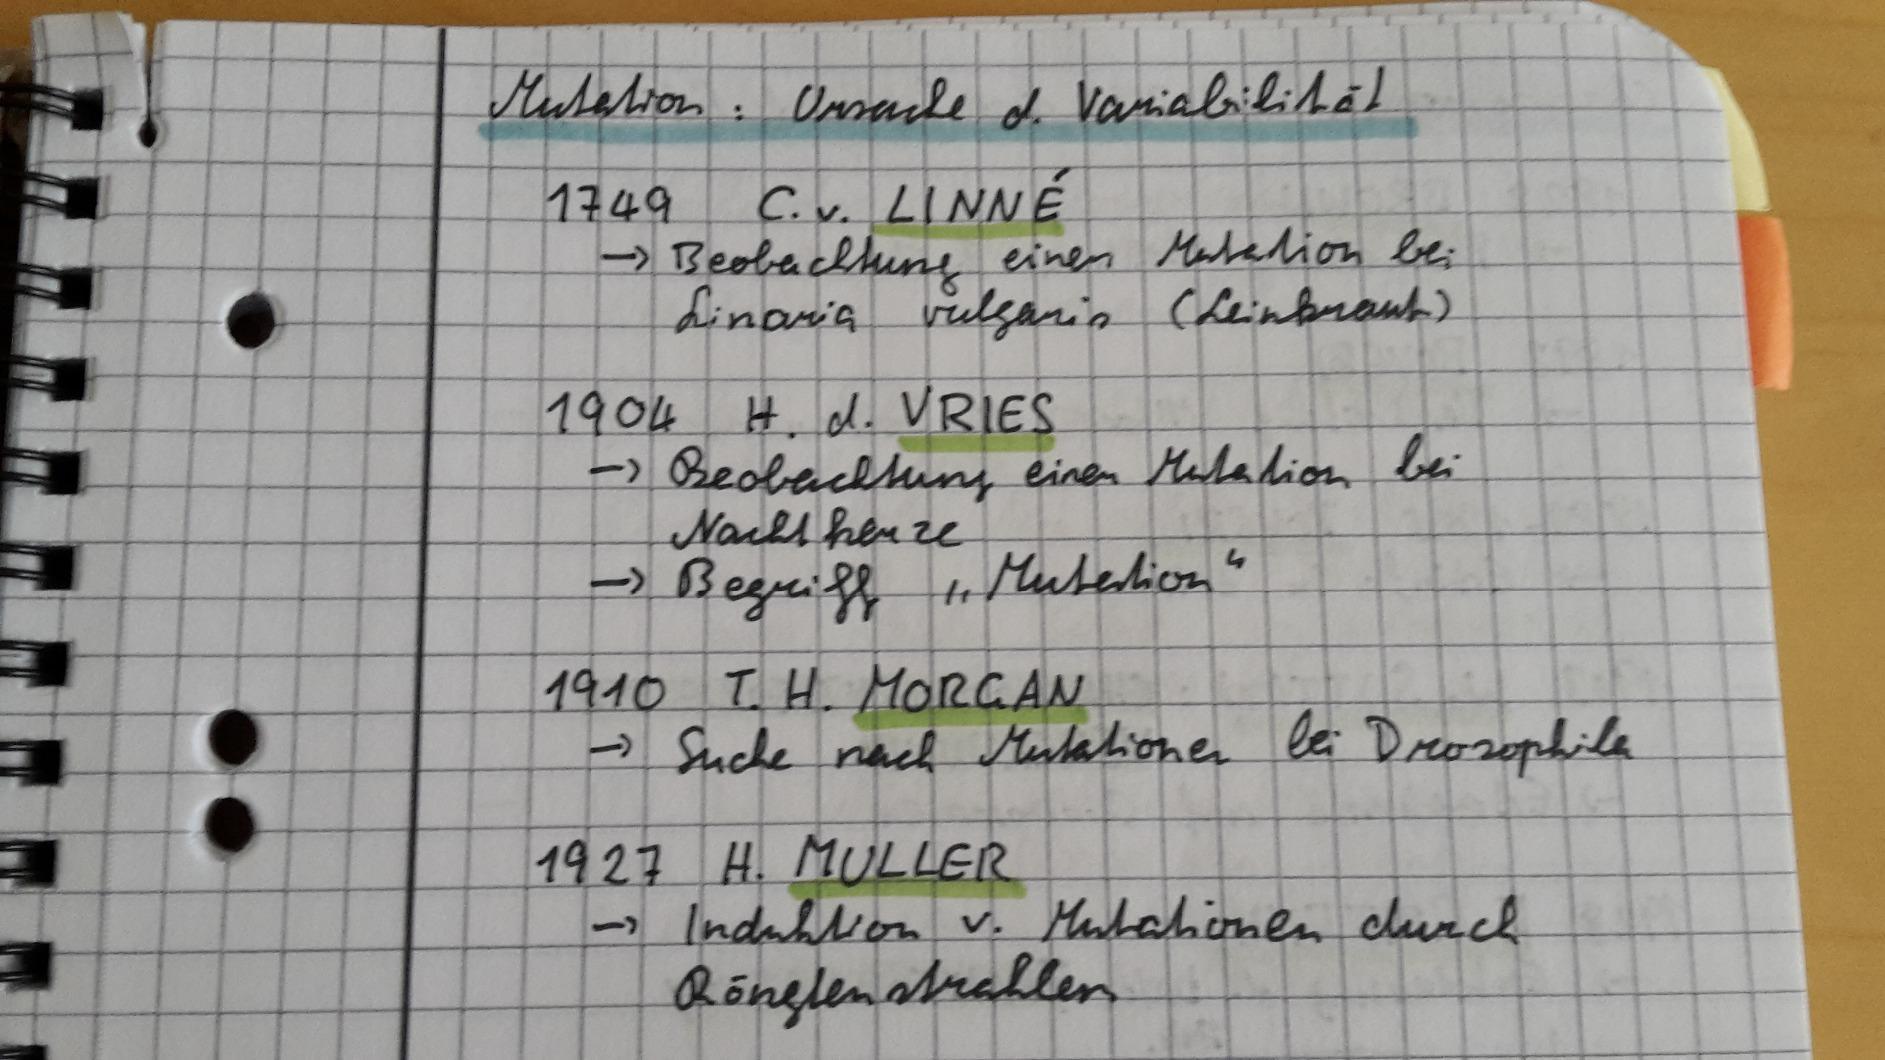 Mutation: Ursache d. Variabilität
1749 C. v. LINNÉ
→ Beobachtung einer Mutation bei
Linaria vulgaris (Leinkraut)
1904 H. d. VRIES
→ Beobachtung einer Mutation bei
Nachtkerze
→ Begriff „Mutation“
1910 T. H. MORGAN
→ Suche nach Mutationen bei Drosophila
1927 H. MULLER
→ Induktion v. Mutationen durch
Röngtenstrahlen